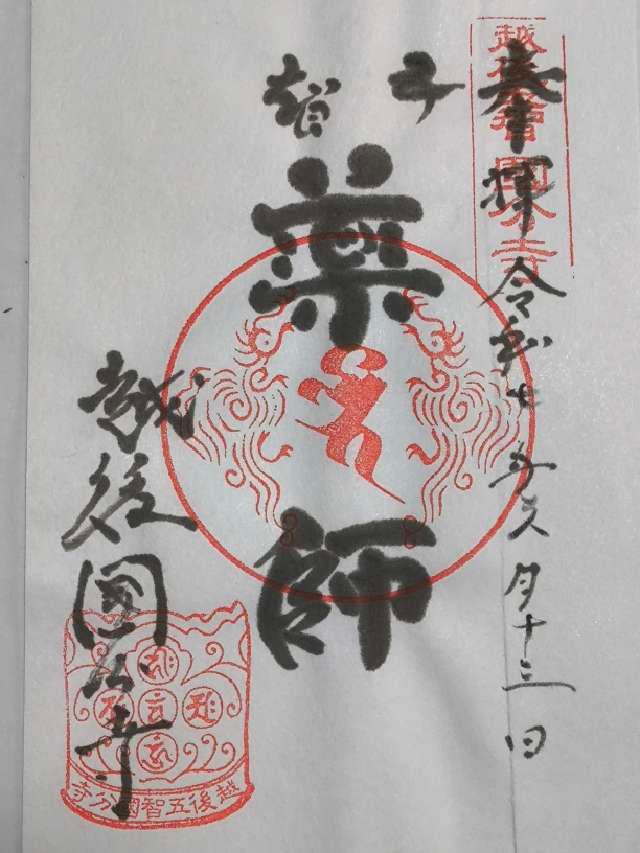 越後五智國分寺
奉拝 令和七年 月十三日
五智
藥師
越後國分寺
越後五智國分寺